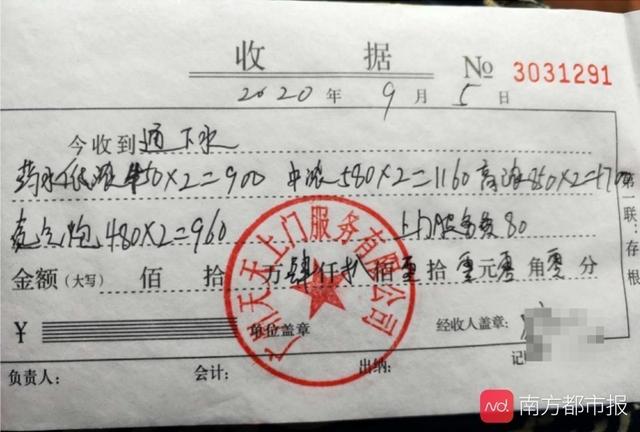 收据 № 3031291
2020年9月5日
今收到通下水
药水低浓450X2=900 中浓580X2=1160 高浓850X2=1700
氧气炮480X2=960 上门服务费80
金额(大写) 佰 拾 万肆仟捌佰零拾零元零角零分
¥ 单位盖章 经收人盖章:
负责人: 会计: 出纳:
第一联:存根
广州天天上门服务有限公司
南方都市报